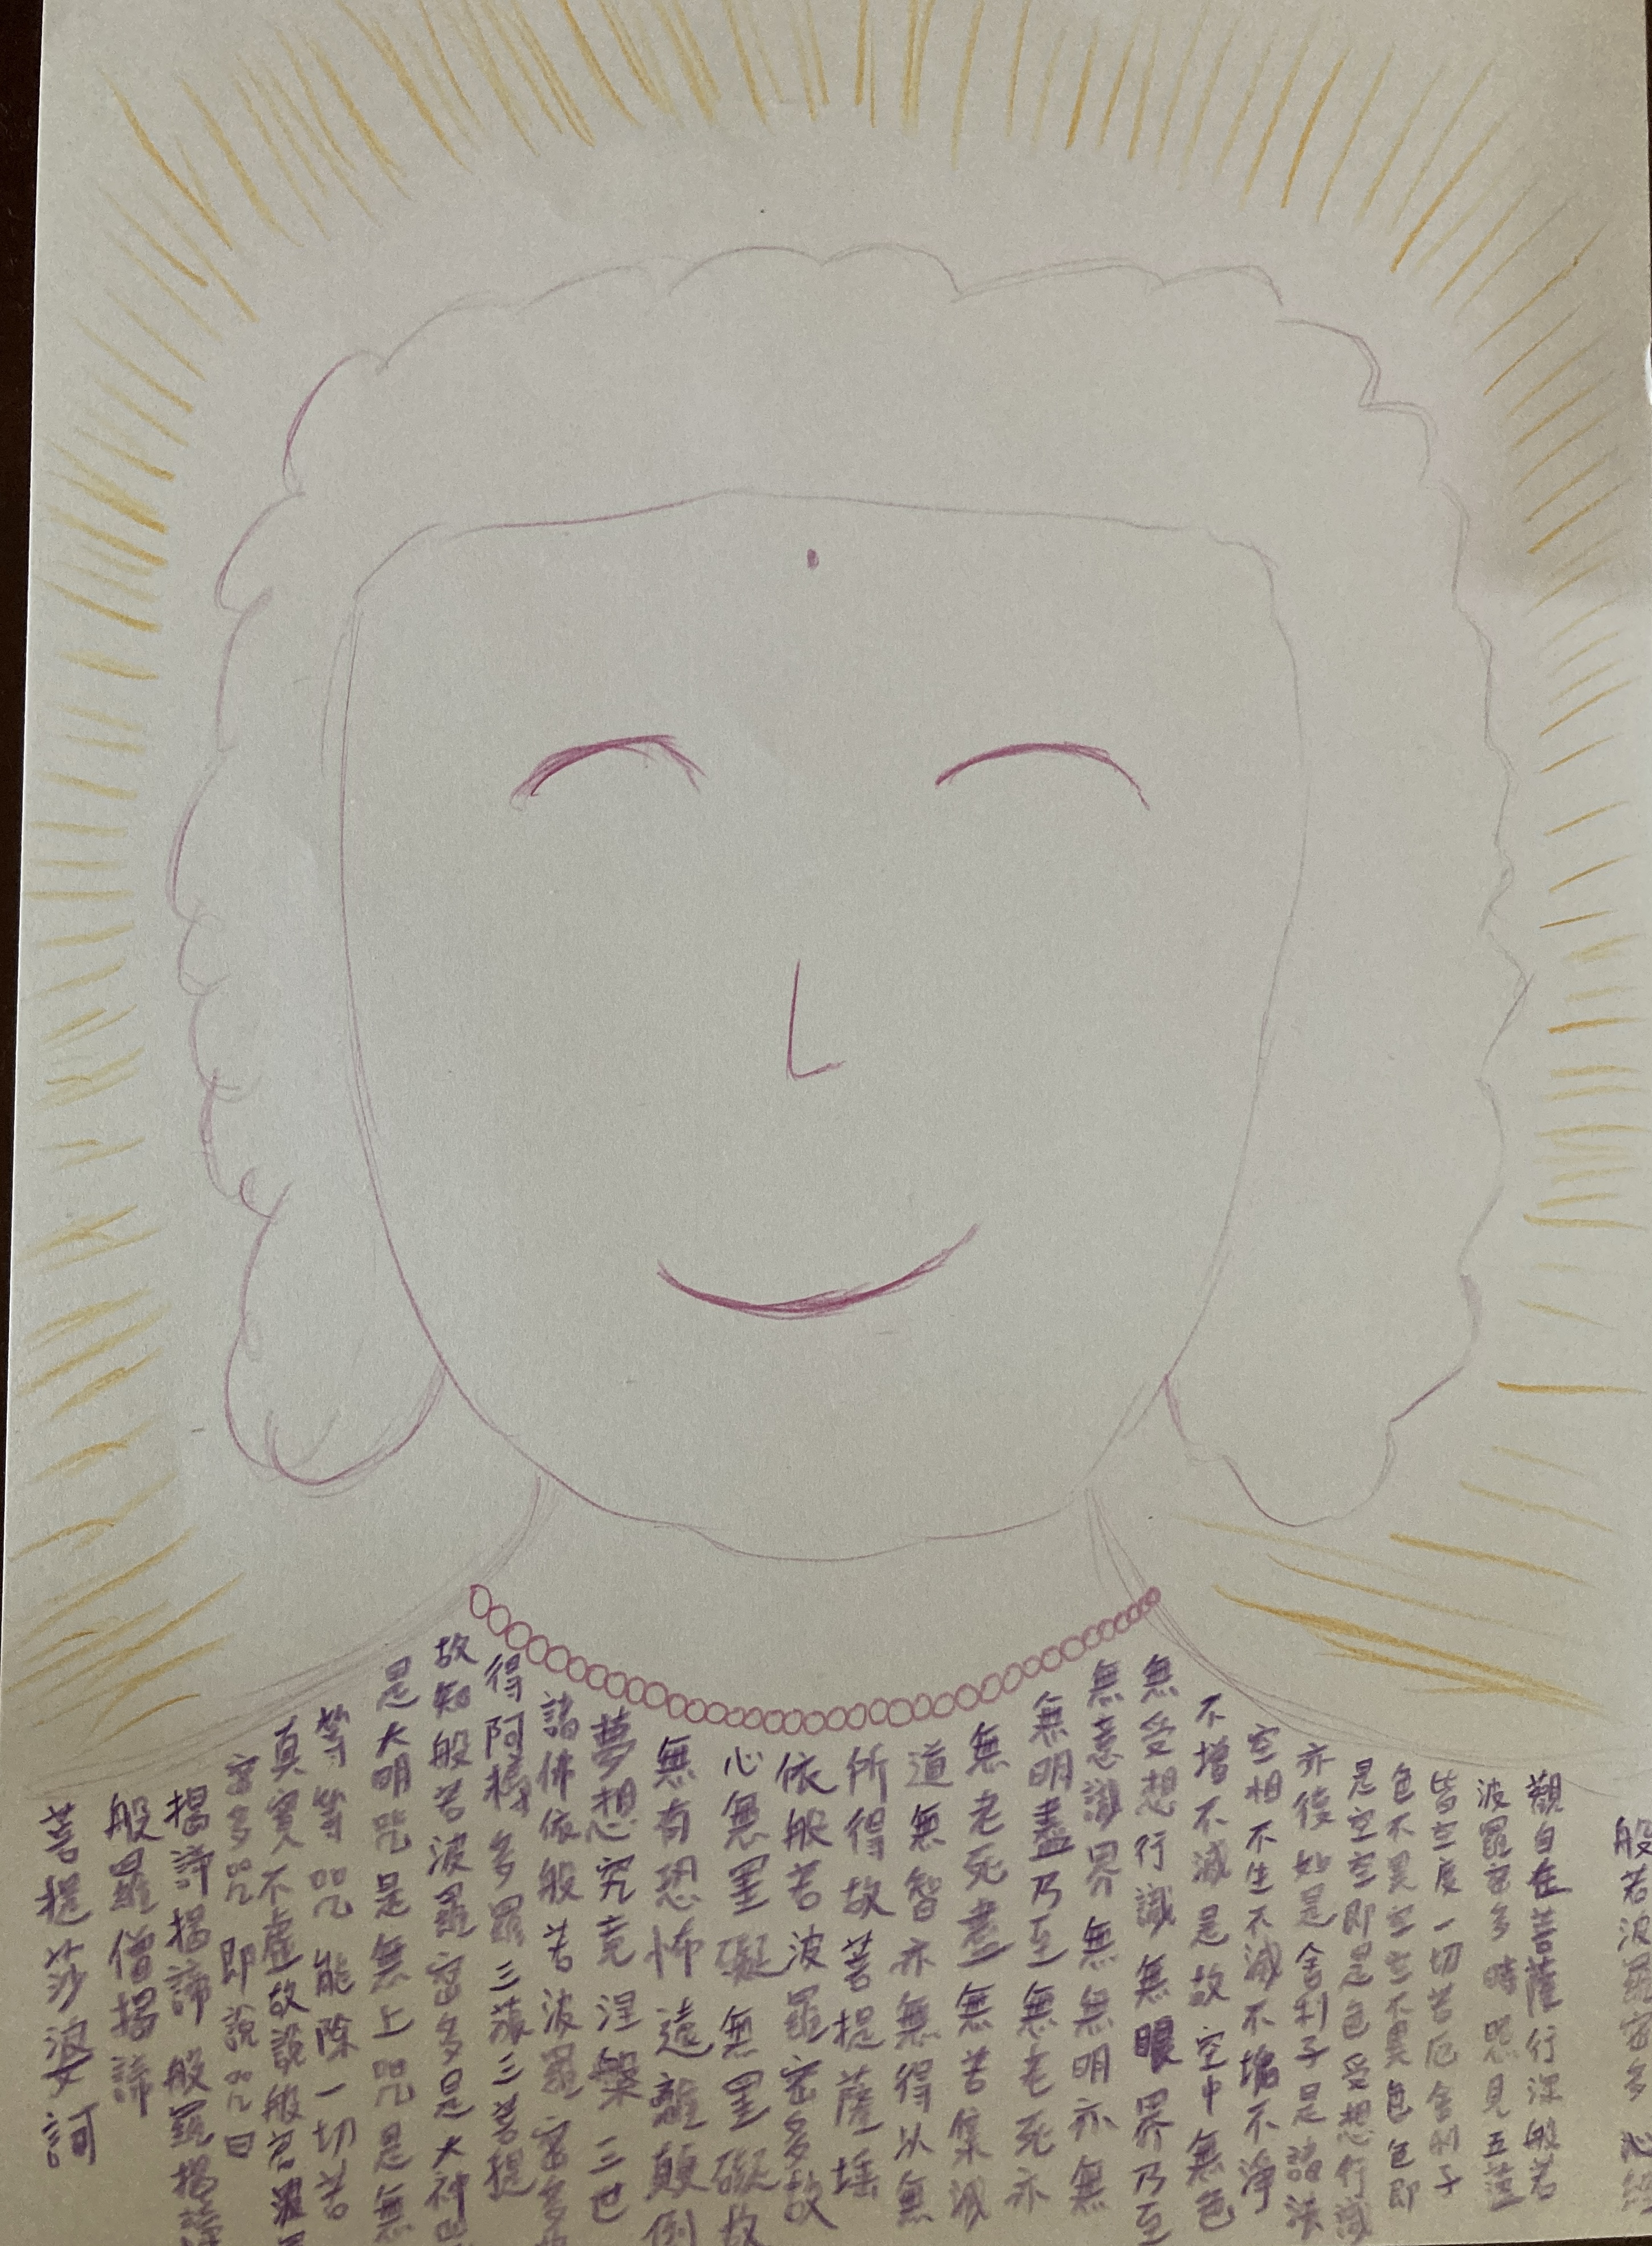 般若波羅密多心經
觀自在菩薩行深般若
波羅密多時照見五蘊
皆空度一切苦厄舍利子
色不異空空不異色色即
是空空即是色受想行識
亦復如是舍利子是諸法
空相不生不滅不垢不淨
不增不減是故空中無色
無受想行識無眼界乃至
無意識界無無明亦無
無明盡乃至無老死亦
無老死盡無苦集滅
道無智亦無得以無
所得故菩提薩埵
依般若波羅密多故
心無罣礙無罣礙故
無有恐怖遠離顛倒
夢想究竟涅槃三世
諸佛依般若波羅密多
得阿耨多羅三藐三菩提
故知般若波羅密多是大神
是大明咒是無上咒是無
等等咒能除一切苦
真實不虛故說般若波
密多咒即說咒曰
揭諦揭諦般羅揭諦
般羅僧揭諦
菩提莎婆訶